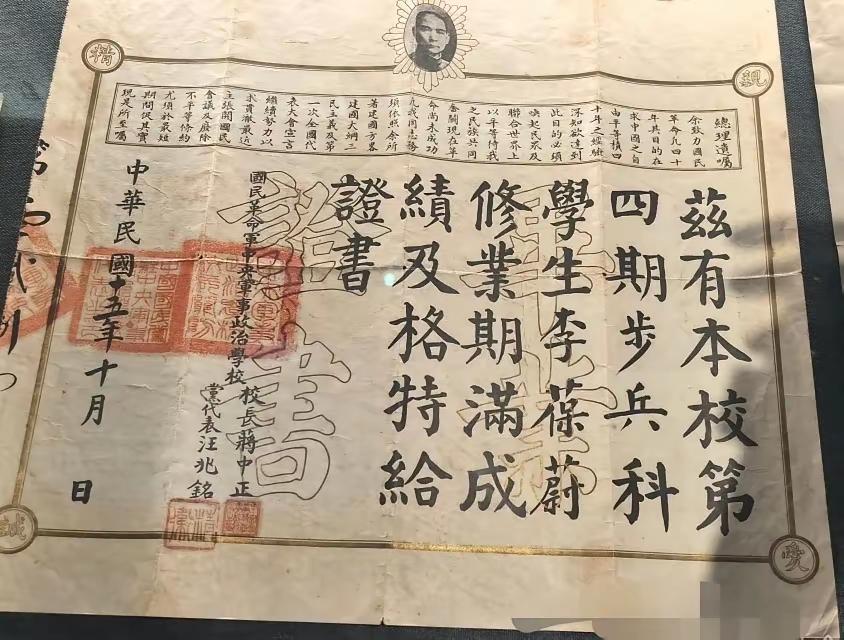 親
愛
精
誠
總理遺囑
余致力國民
革命凡四十
年其目的在
求中國之自
由平等積四
十年之經驗
深知欲達到
此目的必須
喚起民眾及
聯合世界上
以平等待我
之民族共同
奮鬪現在革
命尚未成功
凡我同志務
須依照余所
著建國方畧
建國大綱三
民主義及第
一次全國代
表大會宣言
繼續努力以
求貫徹最近
主張開國民
會議及廢除
不平等條約
尤須於最短
期間促其實
現是所至囑
茲有本校第
四期步兵科
學生李葆蔚
修業期滿成
績及格特給
證書
國民革命軍中央軍事政治學校校長蔣中正
黨代表汪兆銘
中華民國十五年十月 日